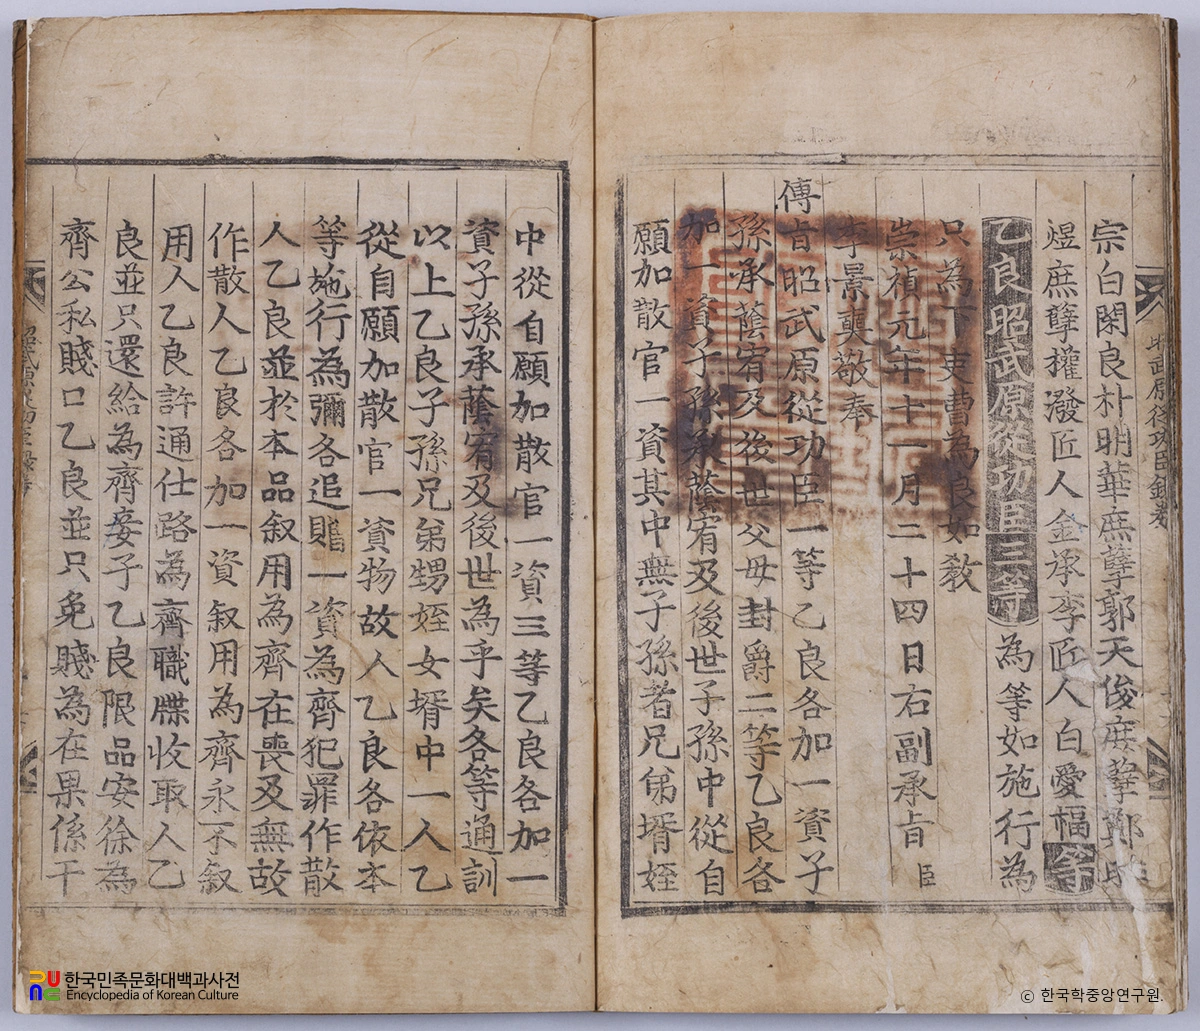 宗白閑良朴明華庶孽郭天俊庶孽鄭
煜庶孽權潑匠人金承李匠人白愛福等
乙良昭武原從功臣三等為等如施行為
只為下吏曹為良如敎
崇禎元年十一月二十四日右副承旨臣
李景奭敬奉
傳旨昭武原從功臣一等乙良各加一資子
孫承蔭宥及後世父母封爵二等乙良各
加一資子孫承蔭宥及後世子孫中從自
願加散官一資其中無子孫者兄弟壻姪
中從自願加散官一資三等乙良各加一
資子孫承蔭宥及後世為乎矣各等通訓
以上乙良子孫兄弟甥姪女壻中一人乙
從自願加散官一資物故人乙良各依本
等施行為彌各追贈一資為齊犯罪作散
人乙良並於本品叙用為齊在喪及無故
作散人乙良各加一資叙用為齊永不叙
用人乙良許通仕路為齊職牒收取人乙
良並只還給為齊妾子乙良限品安徐為
齊公私賤口乙良並只免賤為在果係干
昭武原從功臣錄券
한국민족문화대백과사전
Encyclopedia of Korean Culture
© 한국학중앙연구원.